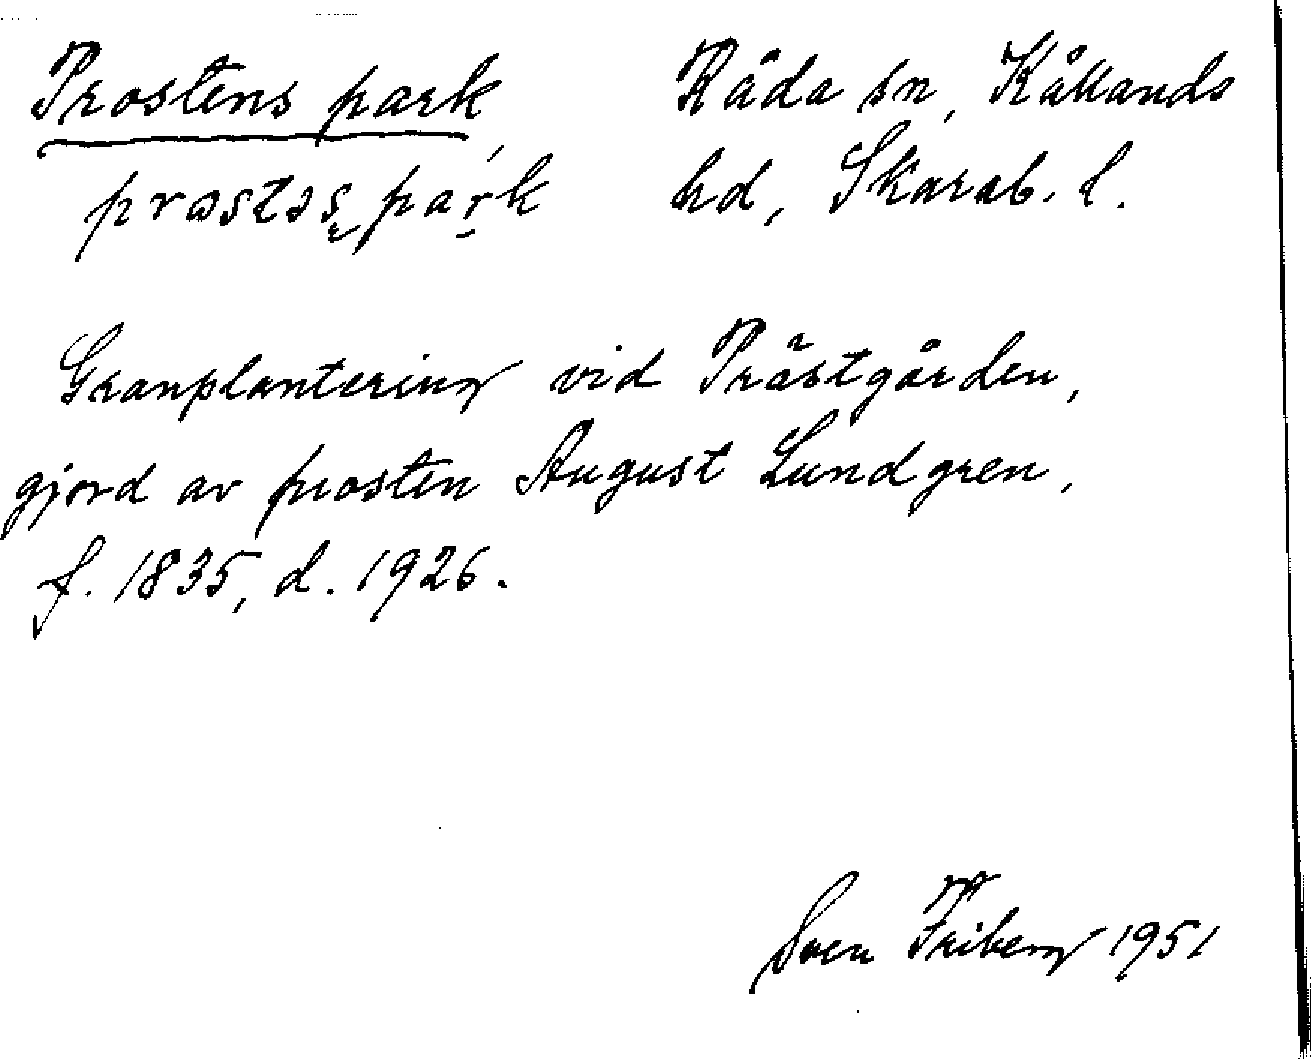 Prostens park Råda sn, Kållands
hd, Skarab. l.
Granplantering vid Prästgården,
gjord av prosten August Lundgren,
f. 1835, d. 1926.
Sven Friberg 1951